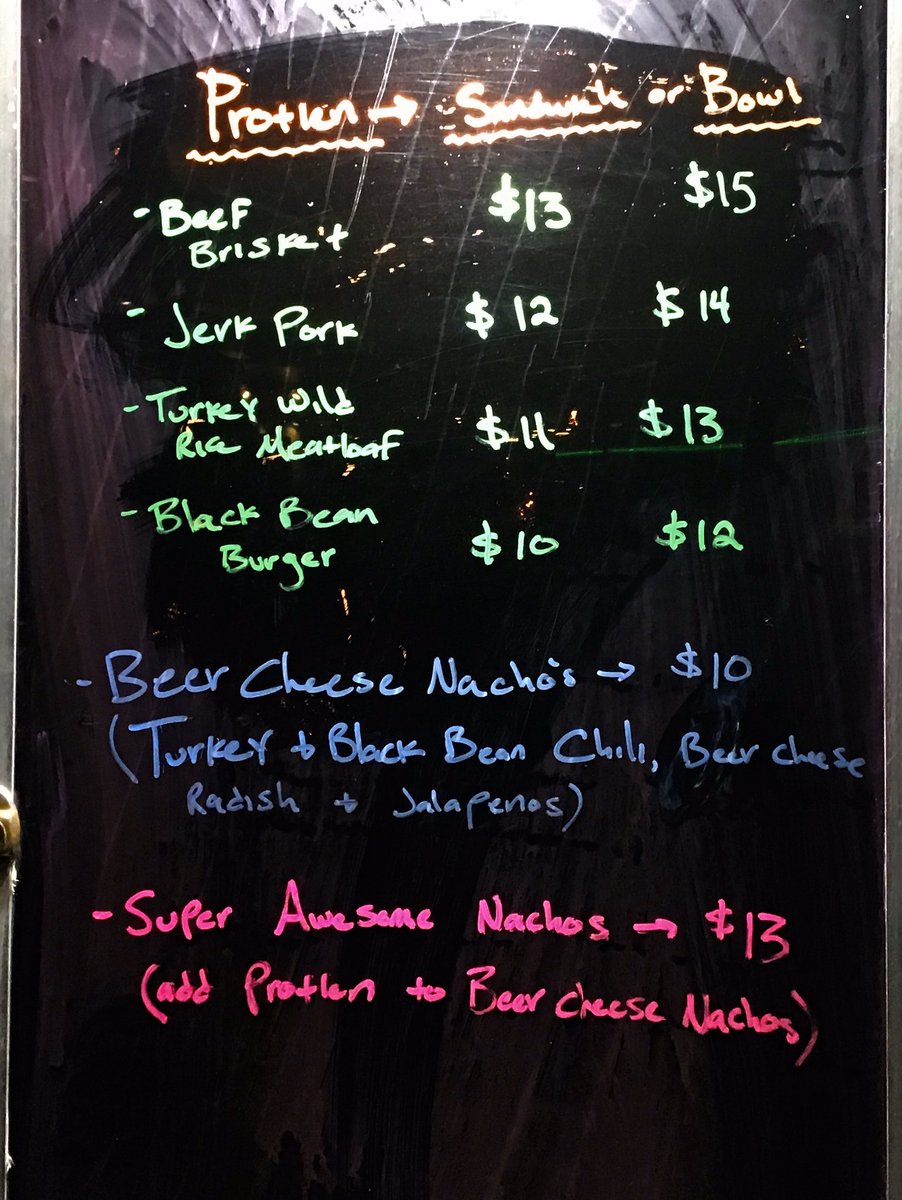 Protien → Sandwich or Bowl
- Beef $13 $15
Brisket
- Jerk Pork $12 $14
- Turkey Wild
Rice Meatloaf $11 $13
- Black Bean
Burger $10 $12
- Beer Cheese Nacho's → $10
(Turkey + Black Bean Chili, Beer cheese
Radish + Jalapenos)
- Super Awesome Nachos → $13
(add Protien to Beer cheese Nachos)